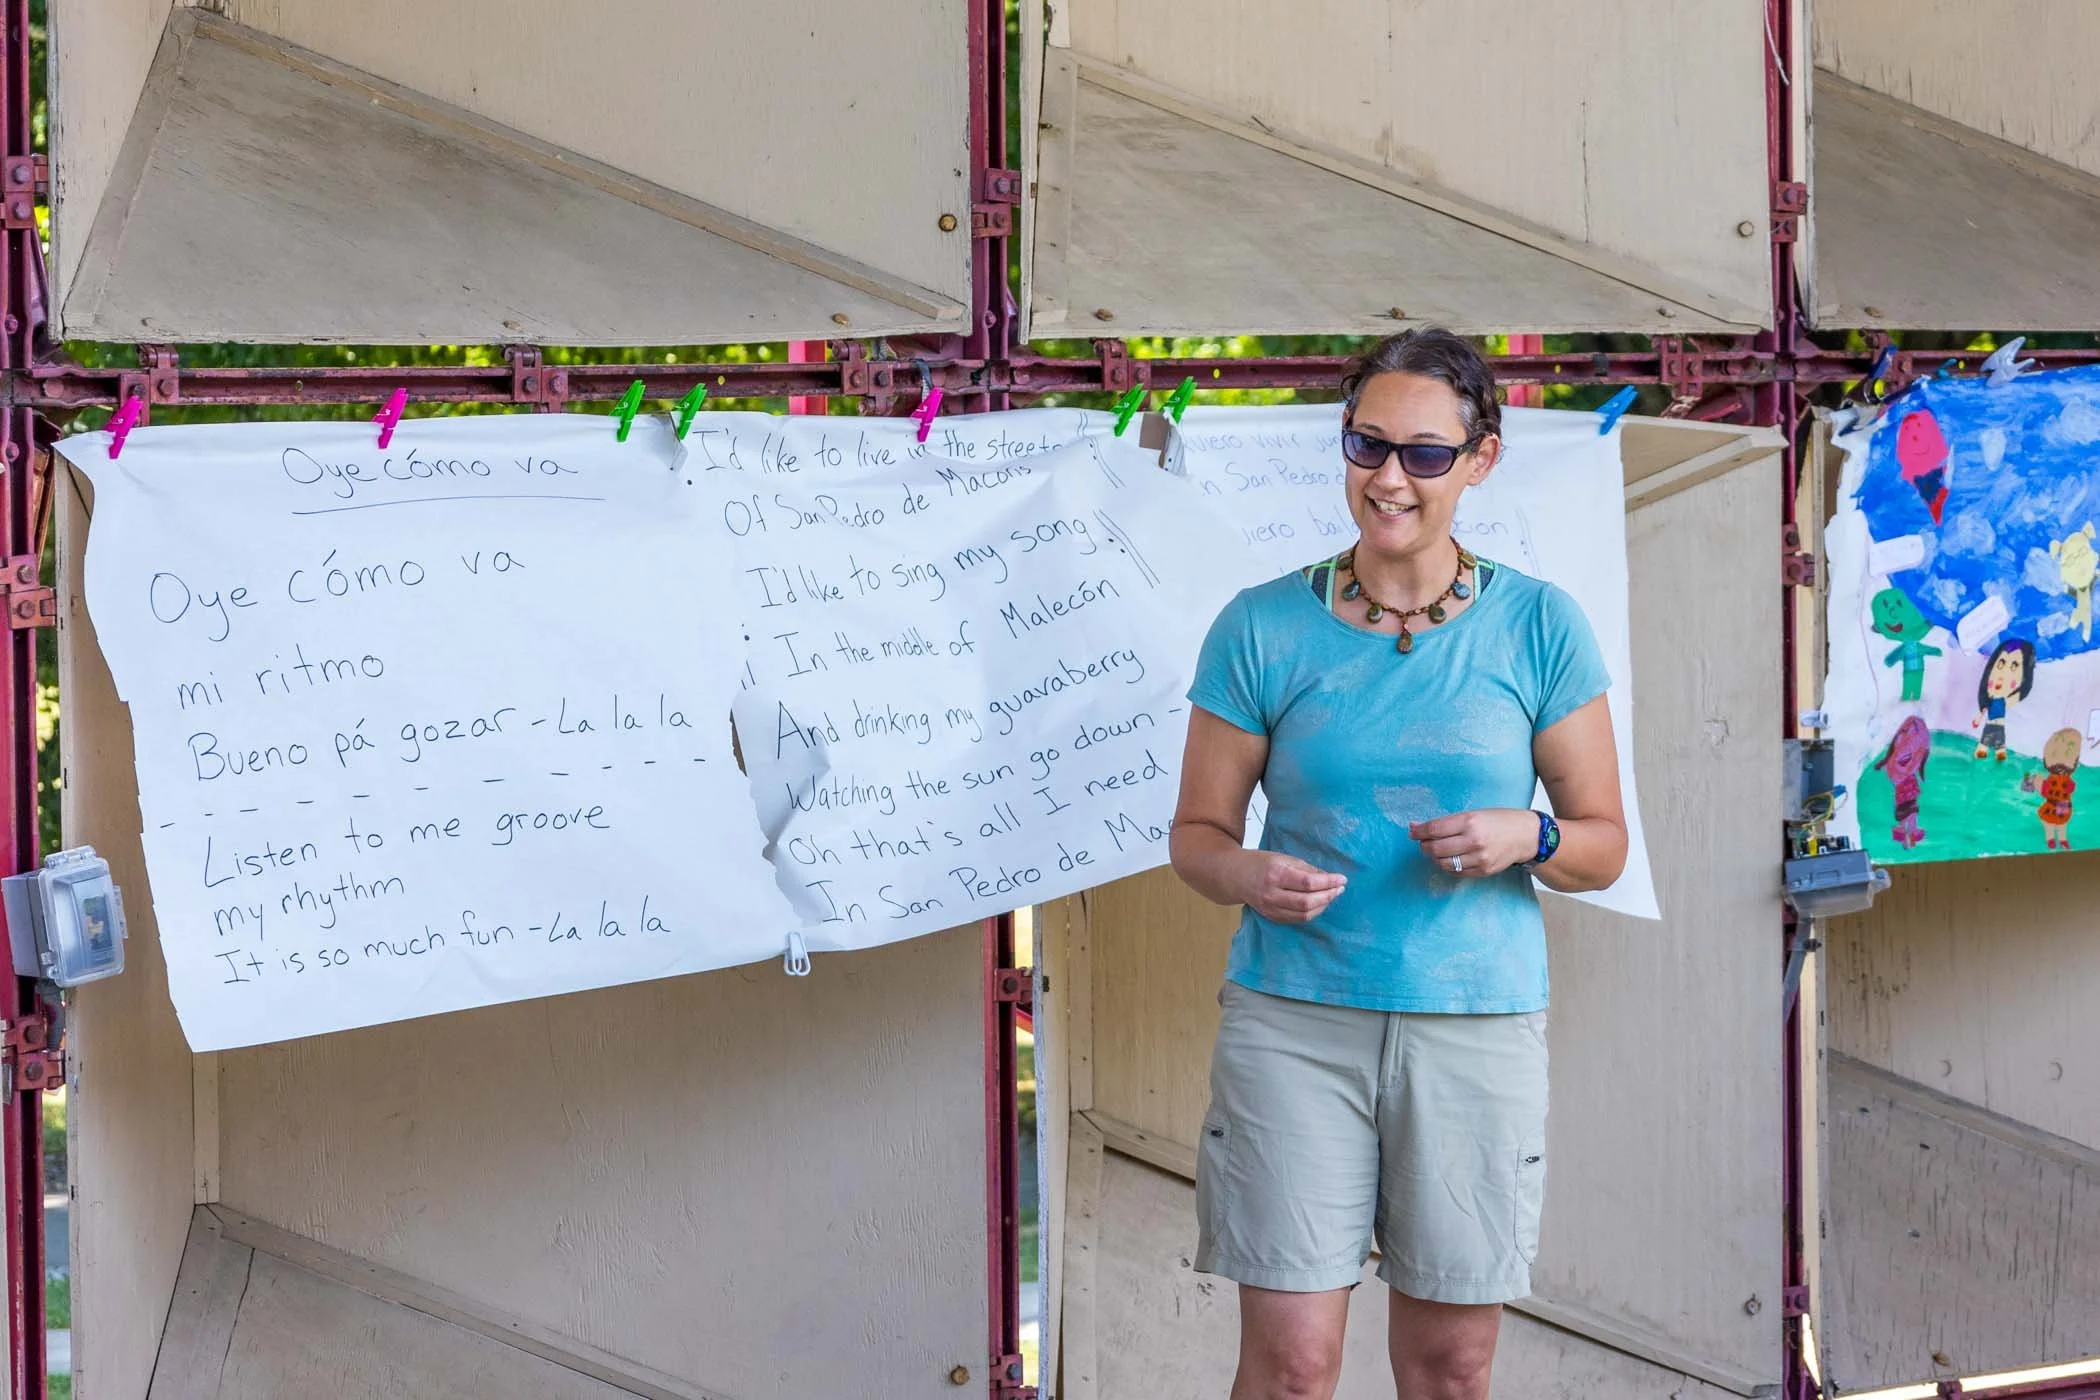 Oye cómo va
Oye cómo va
mi ritmo
Bueno pá gozar - La la la
Listen to me groove
my rhythm
It is so much fun - La la la
I'd like to live in the streets
Of San Pedro de Macoris
I'd like to sing my song
In the middle of Malecón
And drinking my guavaberry
Watching the sun go down -
Oh that's all I need
In San Pedro de Mac
Quiero vivir
San Pedro d